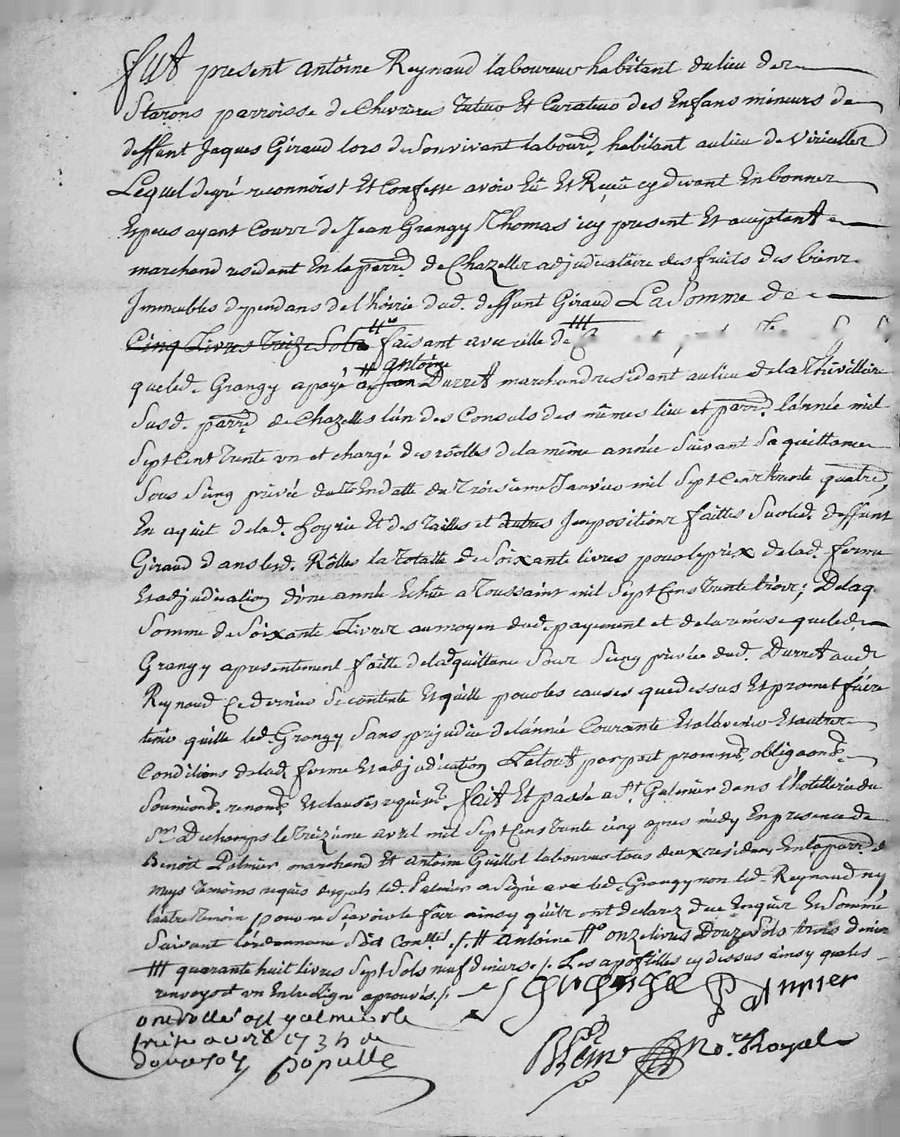 fut present antoine Reynaud laboureur habitant du lieu des
Starons parroisse de Chevrieres tuteur Et Curateur des Enfans mineurs de
deffunt Jaques Giraud lors de son vivant labourr. habitant au lieu de Viricelles
Lequel de gré reconnoist Et Confesse avoir Eû Et Reçeu cy devant En bonnes
Especes ayant Cours de Jean Grangy Thomas icy present Et acceptant
marchand residant En la parre. de Chazelles adjudicataire des fruits des biens
Immeubles dependans de l'hoirie dud. deffunt Giraud La Somme de
Cinq Livres treize Sols faisant avec celle de
que led. Grangy a payé a Jean antoine Durret marchand residant au lieu de la Thuilliere
Susd. parre. de Chazelles l'un des Consuls des mêmes lieu et parre. l'année mil
Sept Cent trente un et chargé des rôolles de la même année Suivant Sa quittance
Sous Seing privée En datte du Troisieme Janvier mil Sept Cent trente quatre,
En aquit de lad. hoyrie Et des tailles et autres Impositions faittes Sur led. deffunt
Giraud dans lesd. Rôlles la totalle de Soixante livres pour le prix de lad. ferme
Et adjudication d'une année Echüe a Toussaint mil Sept Cens trente trois; De laq.
Somme de Soixante Livres au moyen dud. payement et de la remise que led.
Grangy a presentement faitte de lad. quittance Sous Seing privée dud. Durret aud.
Reynaud Ce dernier Se contente Et quitte pour les causes que dessus Et promet faire
tenir quitte led. Grangy Sans prejudice de l'année Courante Et a l'avenir Et autres
Conditions de lad. ferme Et adjudication Le tout par part promess. obligaons.
Soumions. renons. Et clauses requises. fait Et passé a St. Galmier dans l'hotellerie du
Sr. Dechamps le treizieme avril mil Sept Cens trente cinq apres midy En presence de
Benoit Palmier marchand Et antoine Guillot laboureur tous deux residens En la parre. de
Meys temoins requis desquels led. Palmier a Signé avec led. Grangy non led. Reynaud ny
l'autre temoin pour ne Scavoir le faire ainsy qu'ils ont declarez de ce Enquis Et Sommé
Suivant l'ordonnance antoine onze livres Douze Sols trois deniers
quarante huit livres Sept Sols neuf deniers. Les apostilles cy dessus ainsy que les
renvoys et un Entreligne aprouvés.
Grangy Palmier
Not. Royal
controllé a St galmier le
treize avril 1735
douze sols Populle